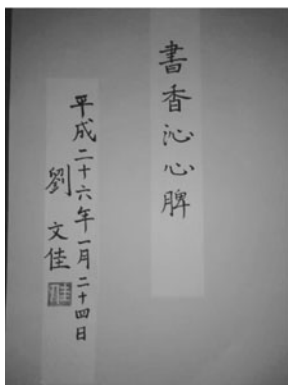 書香沁心脾
平成二十六年一月二十四日
劉文佳